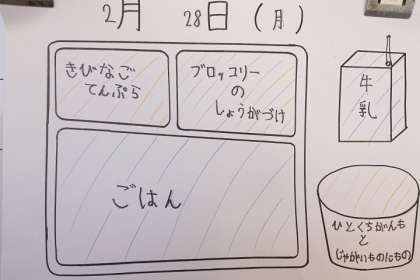 2月 28日 (月)
きびなご
てんぷら
ブロッコリー
の
しょうがづけ
牛
乳
ごはん
ひとくちがんも
と
じゃがいものにもの